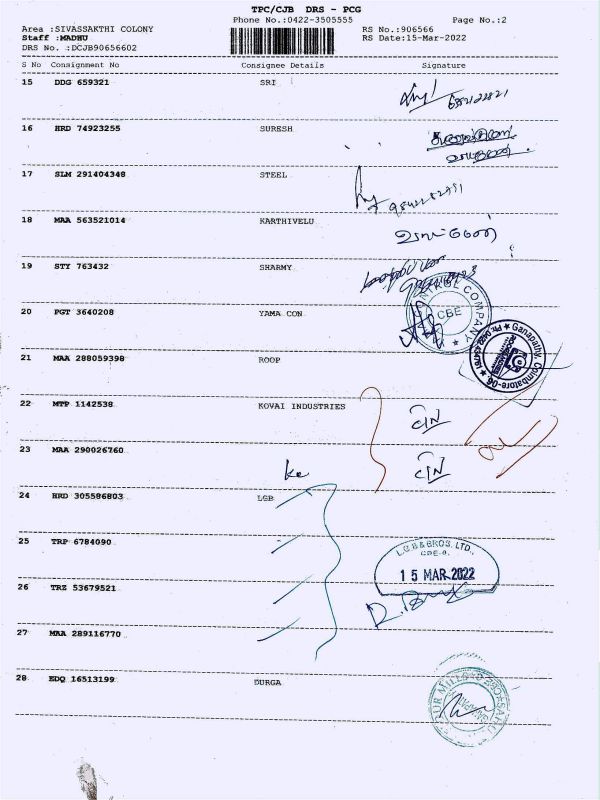 TPC/CJB DRS - PCG
Phone No.:0422-3505555 Page No.:2
Area :SIVASSAKTHI COLONY RS No.:906566
Staff :MADHU RS Date:15-Mar-2022
DRS No. :DCJB90656602
S No Consignment No Consignee Details Signature
15 DDG 659321 SRI
16 HRD 74923255 SURESH
17 SLM 291404348 STEEL
18 MAA 563521014 KARTHIVELU
19 STY 763432 SHARMY
COMPANY
CBE
20 PGT 3640208 YAMA CON
Ganapathy, Coimbatore-06
21 MAA 288059398 ROOP
22 MTP 1142538 KOVAI INDUSTRIES
23 MAA 290026760
24 HRD 305586803 LGB
25 TRP 6784090
L.G.B & BROS. LTD.,
CBE-6.
15 MAR 2022
26 TRZ 53679521
27 MAA 289116770
28 EDQ 16513199 DURGA